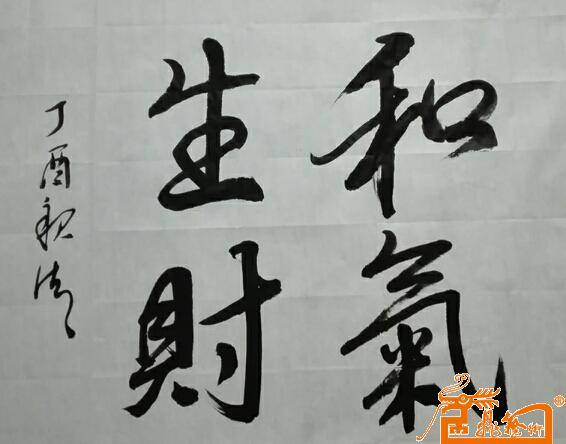 和氣
生財
丁酉